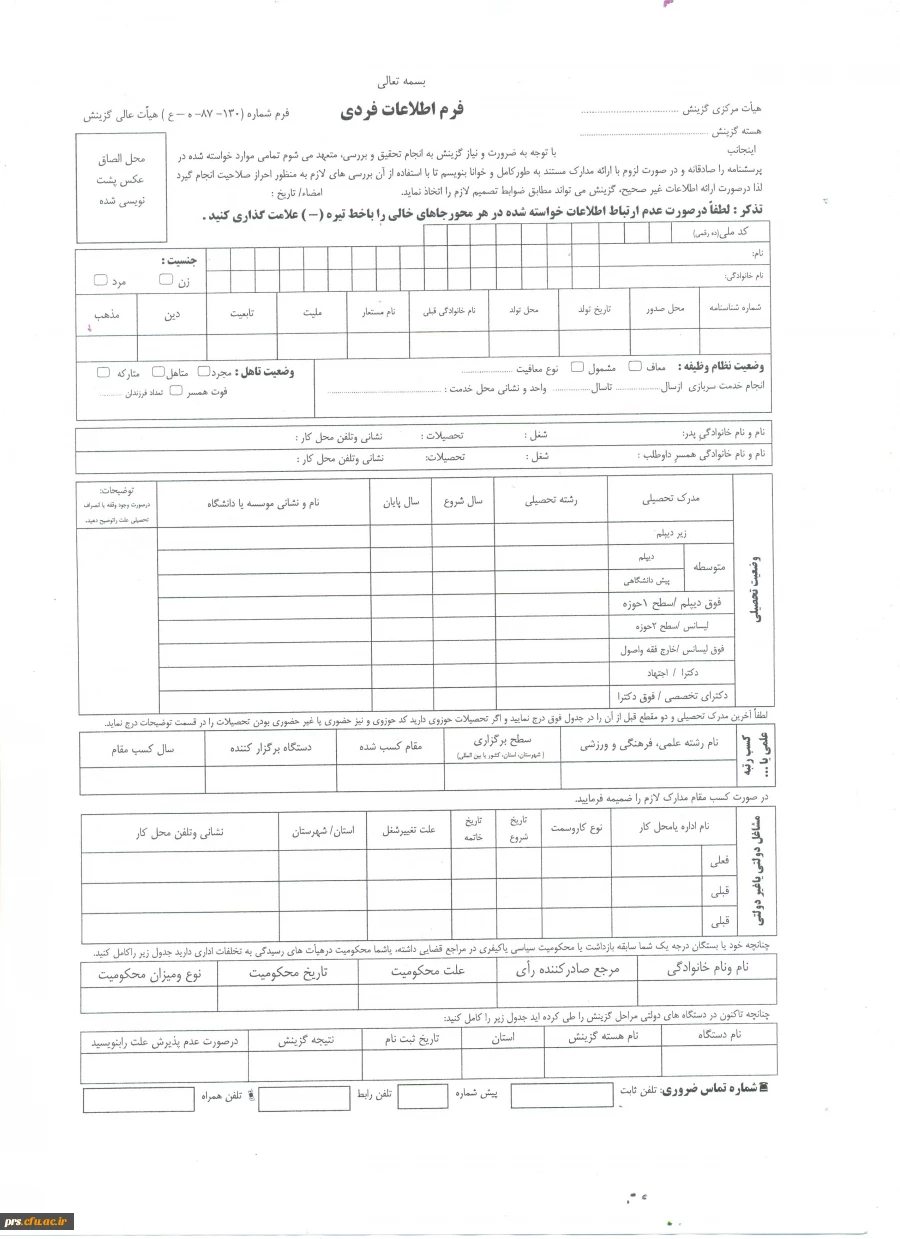 بسمه تعالی
هیأت مرکزی گزینش ............................
فرم اطلاعات فردی
فرم شماره (۱۳۰- ۸۷- ه – ع ) هیأت عالی گزینش
هسته گزینش ............................
محل الصاق
عکس پشت
نویسی شده
اینجانب با توجه به ضرورت و نیاز گزینش به انجام تحقیق و بررسی، متعهد می شوم تمامی موارد خواسته شده در
پرسشنامه را صادقانه و در صورت لزوم با ارائه مدارک مستند به طورکامل و خوانا بنویسم تا با استفاده از آن بررسی های لازم به منظور احراز صلاحیت انجام گیرد
لذا درصورت ارائه اطلاعات غیر صحیح، گزینش می تواند مطابق ضوابط تصمیم لازم را اتخاذ نماید. امضاء/ تاریخ :
تذکر : لطفاً درصورت عدم ارتباط اطلاعات خواسته شده در هر محورجاهای خالی را باخط تیره ( – ) علامت گذاری کنید .
کد ملی(ده رقمی)
نام:
نام خانوادگی:
جنسیت :
زن مرد
شماره شناسنامه محل صدور تاریخ تولد محل تولد نام خانوادگی قبلی نام مستعار ملیت تابعیت دین مذهب
وضعیت نظام وظیفه : معاف مشمول نوع معافیت ..................
انجام خدمت سربازی ازسال .................. تاسال.............. واحد و نشانی محل خدمت : ............................
وضعیت تاهل : مجرد متاهل متارکه
فوت همسر تعداد فرزندان .........
نام و نام خانوادگی پدر: شغل : تحصیلات : نشانی وتلفن محل کار :
نام و نام خانوادگی همسر داوطلب : شغل : تحصیلات: نشانی وتلفن محل کار :
وضعیت تحصیلی
مدرک تحصیلی رشته تحصیلی سال شروع سال پایان نام و نشانی موسسه یا دانشگاه
توضیحات:
درصورت وجود وقفه یا انصراف
تحصیلی علت راتوضیح دهید.
زیر دیپلم
متوسطه
دیپلم
پیش دانشگاهی
فوق دیپلم /سطح ۱حوزه
لیسانس /سطح ۲حوزه
فوق لیسانس /خارج فقه واصول
دکترا / اجتهاد
دکترای تخصصی / فوق دکترا
لطفاً آخرین مدرک تحصیلی و دو مقطع قبل از آن را در جدول فوق درج نمایید و اگر تحصیلات حوزوی دارید کد حوزوی و نیز حضوری یا غیر حضوری بودن تحصیلات را در قسمت توضیحات درج نماید.
کسب رتبه
علمی یا ...
نام رشته علمی، فرهنگی و ورزشی سطح برگزاری مقام کسب شده دستگاه برگزار کننده سال کسب مقام
( شهرستان، استان، کشور یا بین المللی)
در صورت کسب مقام مدارک لازم را ضمیمه فرمایید.
مشاغل دولتی یاغیر دولتی
نام اداره یامحل کار نوع کاروسمت تاریخ شروع تاریخ خاتمه علت تغییرشغل استان/ شهرستان نشانی وتلفن محل کار
فعلی
قبلی
قبلی
چنانچه خود یا بستگان درجه یک شما سابقه بازداشت یا محکومیت سیاسی یاکیفری در مراجع قضایی داشته، یاشما محکومیت درهیأت های رسیدگی به تخلفات اداری دارید جدول زیر راکامل کنید.
نام ونام خانوادگی مرجع صادرکننده رأی علت محکومیت تاریخ محکومیت نوع ومیزان محکومیت
چنانچه تاکنون در دستگاه های دولتی مراحل گزینش را طی کرده اید جدول زیر را کامل کنید:
نام دستگاه نام هسته گزینش استان تاریخ ثبت نام نتیجه گزینش درصورت عدم پذیرش علت رابنویسید
شماره تماس ضروری: تلفن ثابت پیش شماره تلفن رابط تلفن همراه
prs.cfu.ac.ir